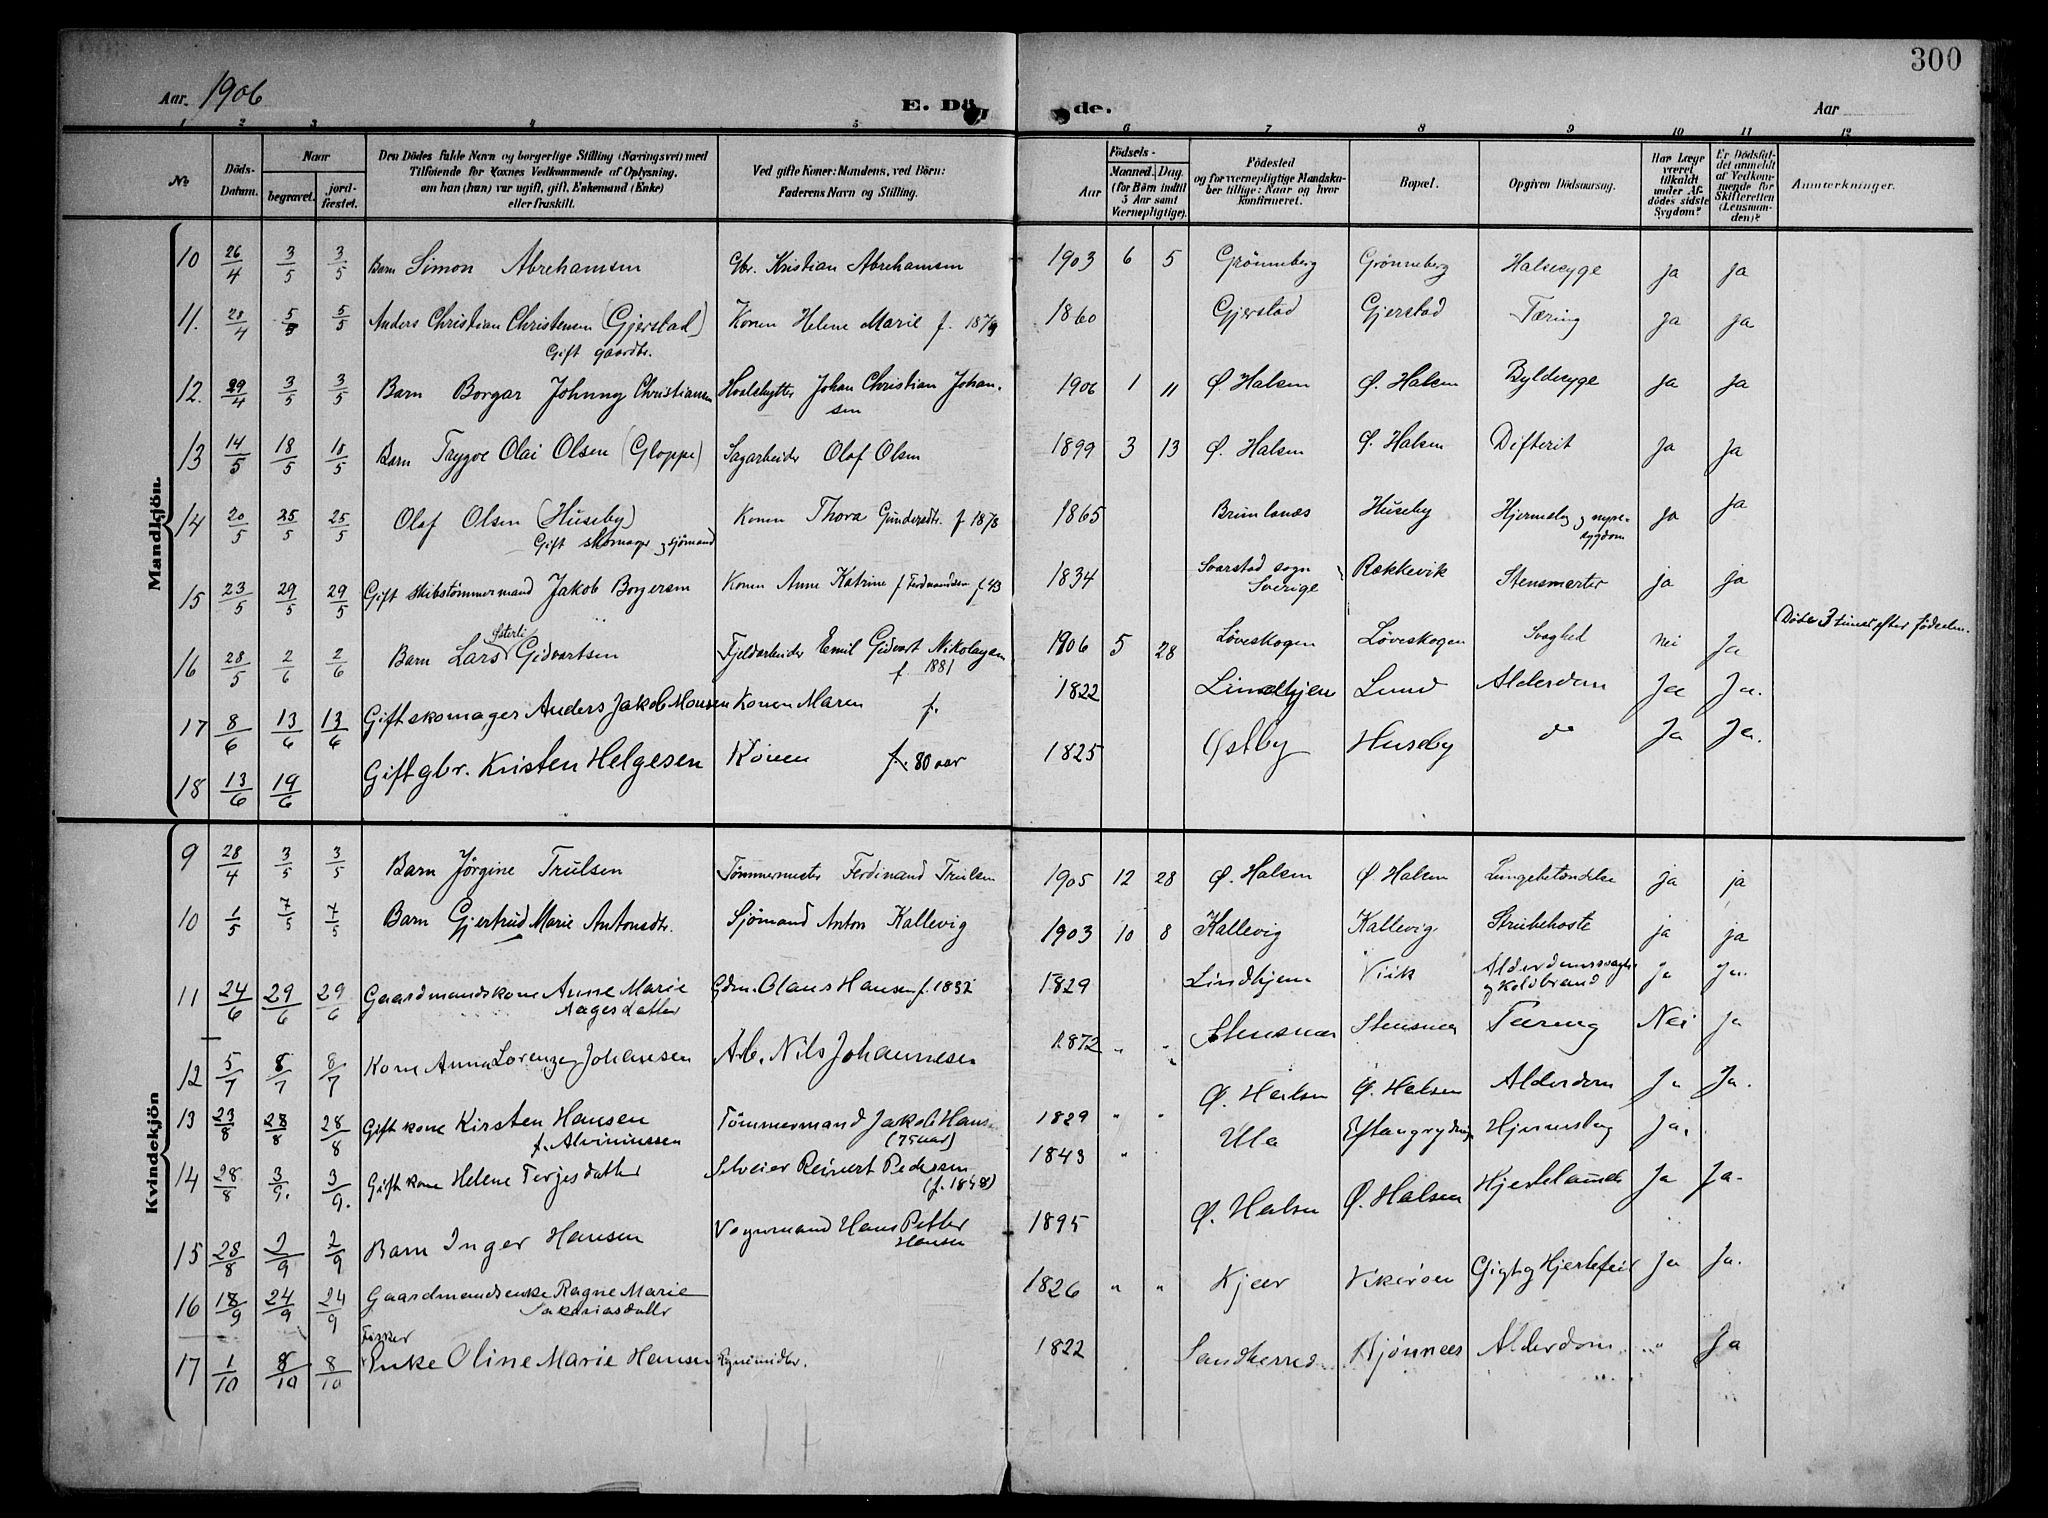 300
Aar. 1906
E. Dö de.
Aar
1 2 3 4 5 6 7 8 9 10 11 12
No
Döds-Datum.
Naar
begravet.
jord-fæstet.
Den Dödes fulde Navn og borgerlige Stilling (Næringsvei) med
Tilföiende for Voxnes Vedkommende af Oplysning,
om han (hun) var ugift, gift, Enkemand (Enke)
eller fraskilt.
Ved gifte Koner: Mandens, ved Börn:
Faderens Navn og Stilling.
Födsels-
Aar
Maaned. Dag.
(for Börn indtil
5 Aar samt
Værnepligtige).
Födested
og for værnepligtige Mandska-
ber tillige: Naar og hvor
konfirmeret.
Bopæl.
Opgiven Dödsaarsag.
Har Læge
været
tilkaldt
under Af-
dödes sidste
Sygdom?
Er Dödsfal-
det anmeldt
af Vedkom-
mende for
Skifteretten
(Lensman-
den)?
Anmærkninger.
Mandkjön.
10 26/4 3/5 3/5 Barn Simon Abrehamsen Gbr. Kristian Abrehamsen 1903 6 5 Grønneberg Grønneberg Halssyge ja ja
11. 28/4 5/5 5/5 Anders Christian Christensen (Gjerstad) Konen Helene Marie f. 1879 1860 Gjerstad Gjerstad Tæring ja ja
Gift gaardbr.
12. 29/4 3/5 3/5 Barn Borgar Johnny Christiansen Johan Christian Johan- 1906 1 11 Ø. Halsen Ø. Halsen Byldesyge ja ja
sen
13 14/5 18/5 18/5 Barn Trygve Olai Olsen (Gloppe) Sagarbeider Olaf Olsen 1899 3 13 Ø. Halsen Ø. Halsen Difterit ja ja
14 20/5 25/5 25/5 Olaf Olsen (Huseby) Konen Thora Gundersdtr. f 1878 1865 Brunlanæs Huseby Hjerneslag og nyre- ja ja
Gift skomager og sjömand sygdom
15 23/5 29/5 29/5 Gift skibstømmermand Jakob Borgersen Konen Anne Katrine f Ferdinandsen f. 43 1834 Svarstad sogn Rækkevik Stensmerter ja ja
Sverige
16 28/5 2/6 2/6 Barn Lars Gidvartsen Fjeldarbeider Emil Gidvart Nikolaysen 1906 5 28 Løveskogen Løveskogen Svaghed nei ja Døde 3 timer efter fødselen.
f. 1881
17 8/6 13/6 13/6 Gift skomager Anders Jakob Monsen Konen Maren f. 1822 Lindhjem Lund Alderdom Ja Ja.
18 13/6 19/6 Gift gbr. Kristen Helgesen Konen f. 80 aar 1825 Østby Huseby do Ja Ja.
Kvindekjön
9 28/4 3/5 3/5 Barn Jørgine Trulsen Tømmermester Ferdinand Trulsen 1905 12 28 Ø. Halsen Ø. Halsen Lungebetændelse ja ja
10 1/5 7/5 7/5 Barn Gjertrud Marie Antonsdtr. Sjömand Anton Kallevig 1903 10 8 Kallevig Kallevig Strubehoste ja ja
11 24/6 29/6 29/6 Gaardmandskone Anne Marie Gdm. Olaus Hansen f. 1832 1829 Lindhjem Viik Alderdomssvaghed Ja Ja.
Aagesdatter og Koldbrand
12 5/7 8/7 8/7 Kone Anna Lorenze Johansen Arb. Nils Johannesen 1872 " " Stensnæs Stensnæs Tæring Nei Ja
13 23/8 28/8 28/8 Gift kone Kirsten Hansen Tømmermand Jakob Hansen 1829 " " Ø. Halsen Ø. Halsen Alderdom Ja Ja.
(75 aar)
14 28/8 3/9. 3/9. Gift kone Helene Terjesdatter Selveier Reinert Pedersen 1843 " Ula Hjerneslag ja.
(f. 1848)
15 28/8 2/9 2/9 Barn Inger Hansen Vognmand Hans Petter 1895 Ø. Halsen Ø. Halsen Ja Ja.
Hansen
16 18/9 24/9 24/9 Gaardmandsenke Ragne Marie 1826 " " Kjær Gigt og Hjertefeil Ja Ja.
Sakariasdatter
Fisker
17 1/10 8/10 8/10 Enke Oline Marie Hansen 1822 Sandherred Bjønnes Alderdom " Ja